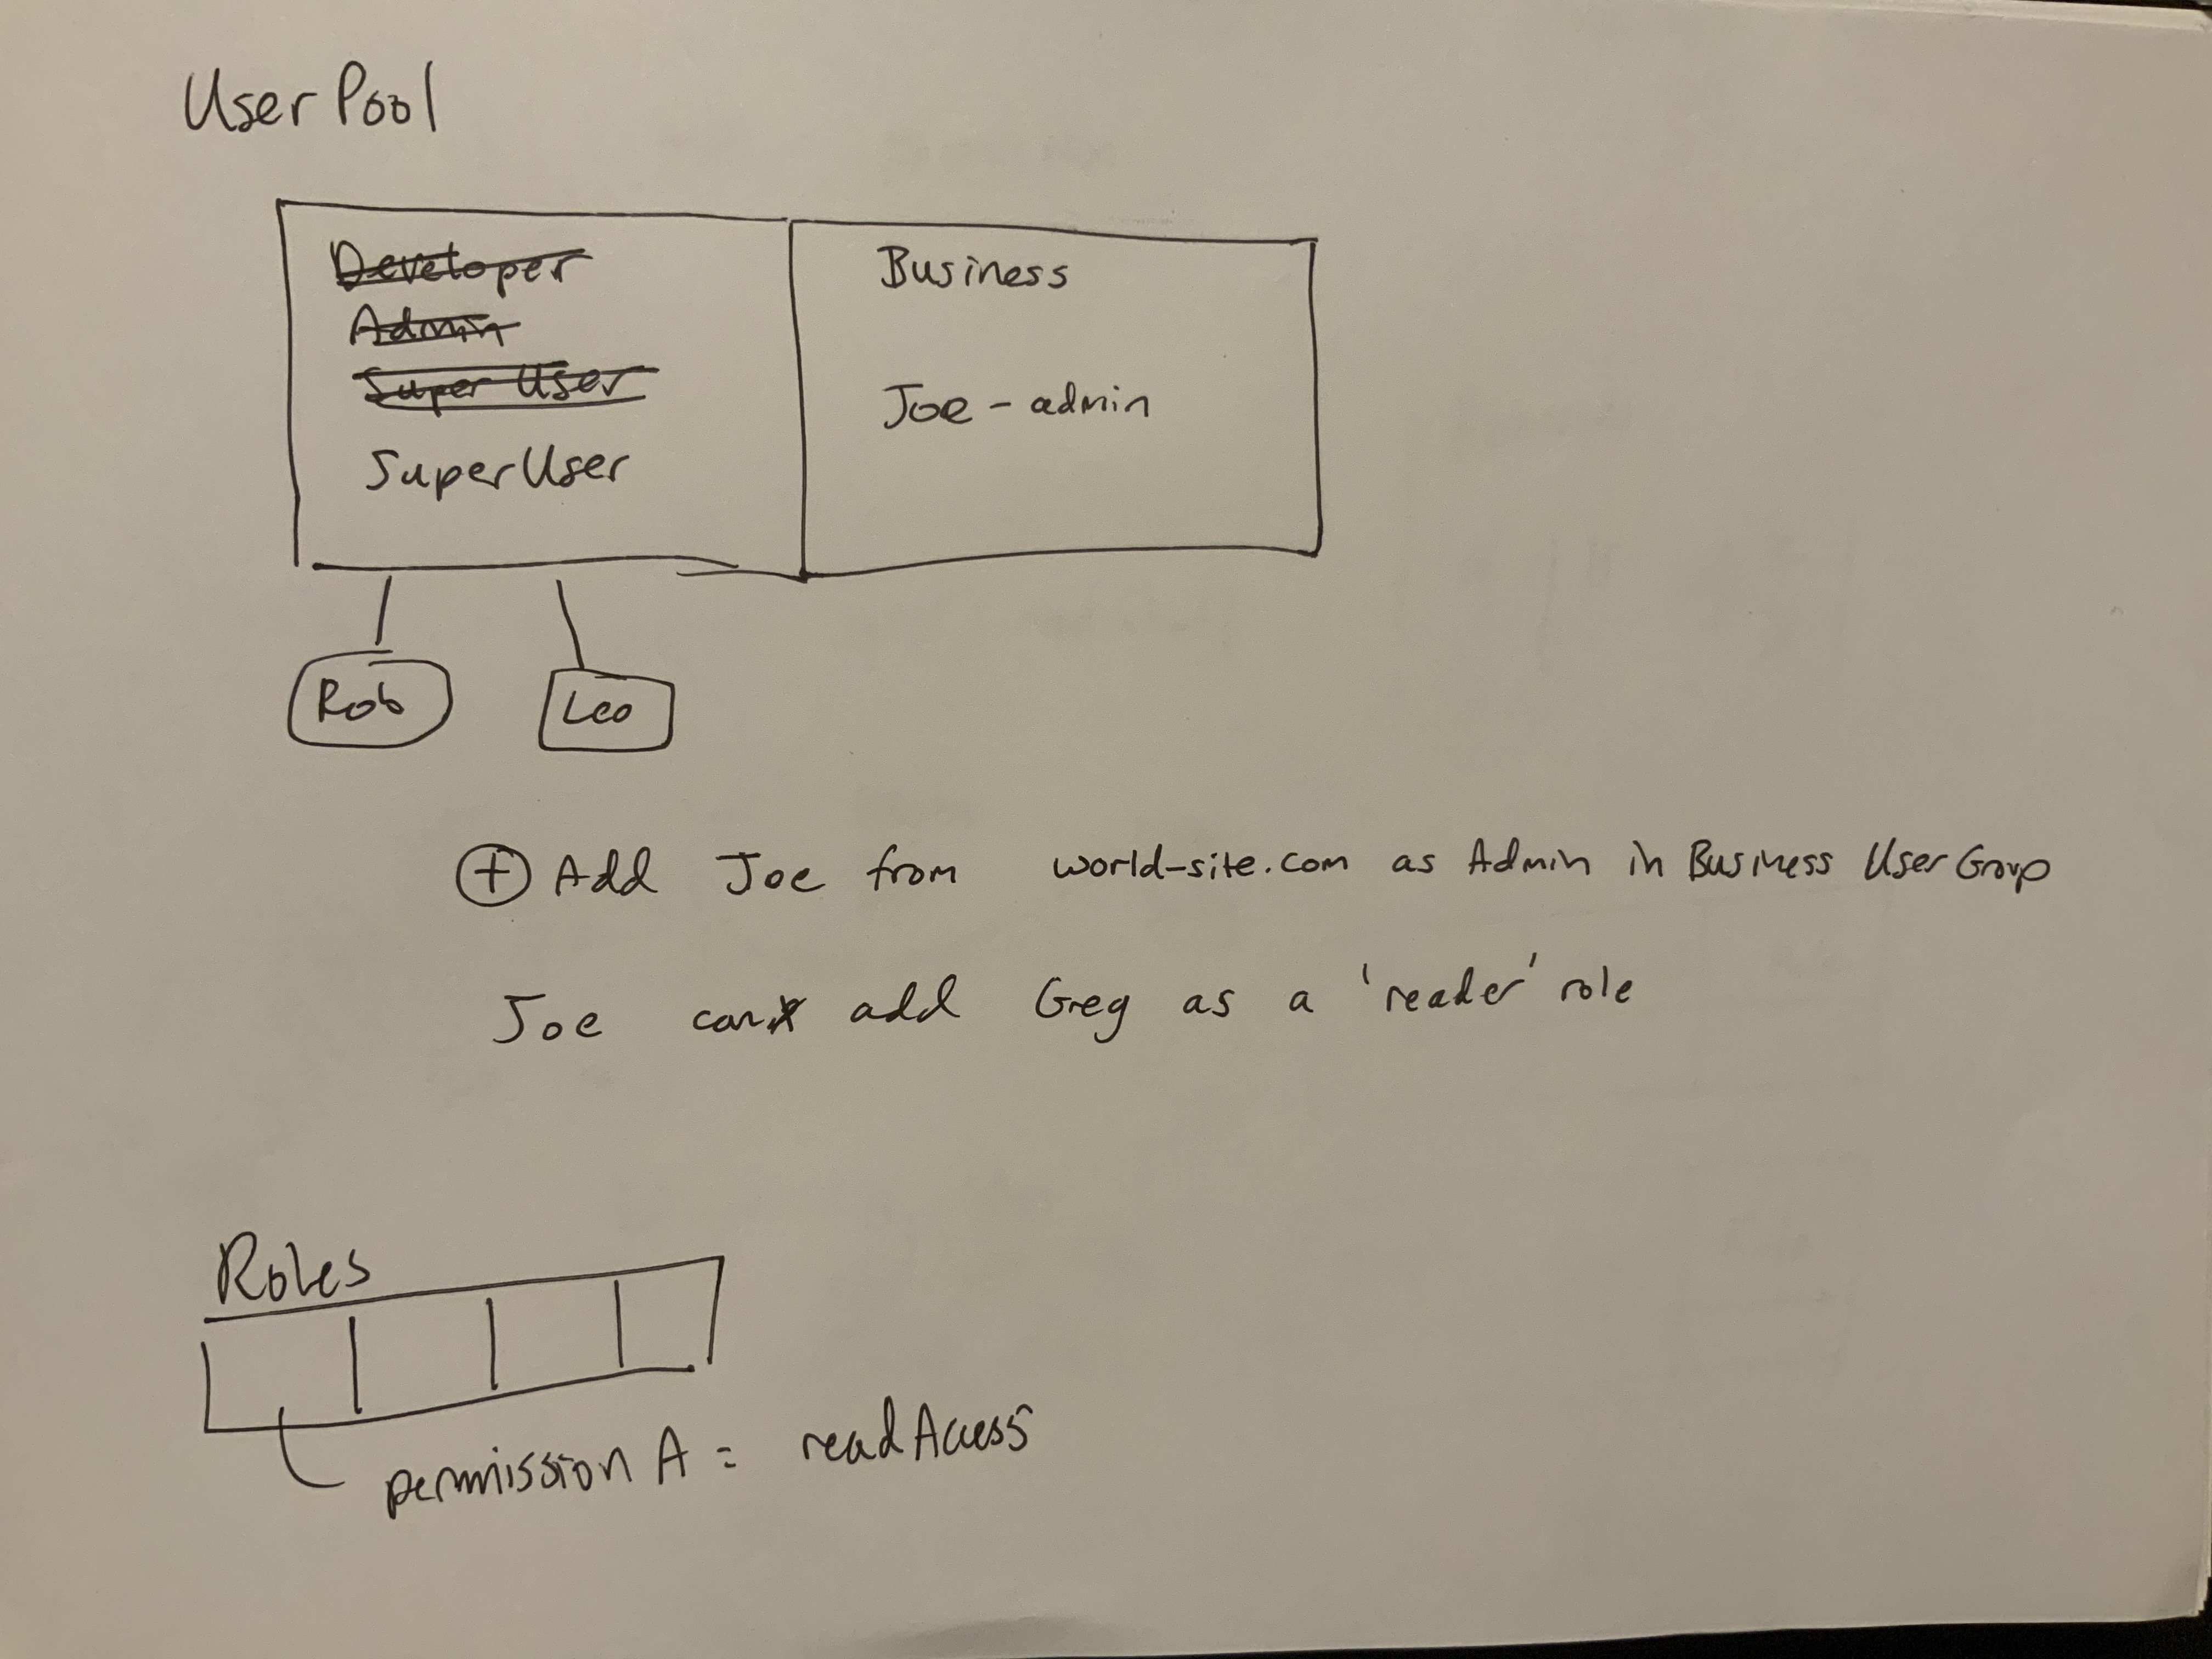 User Pool
Developer
Admin
Super User
SuperUser
Business
Joe - admin
Rob
Leo
+ Add Joe from world-site.com as Admin in Business User Group
Joe can add Greg as a 'reader' role
Roles
permission A = readAccess